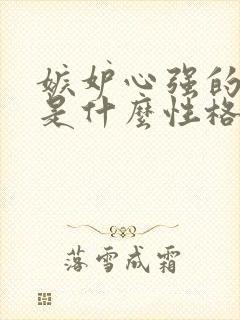 嫉妒心强的
是什麼性格
落雪成霜